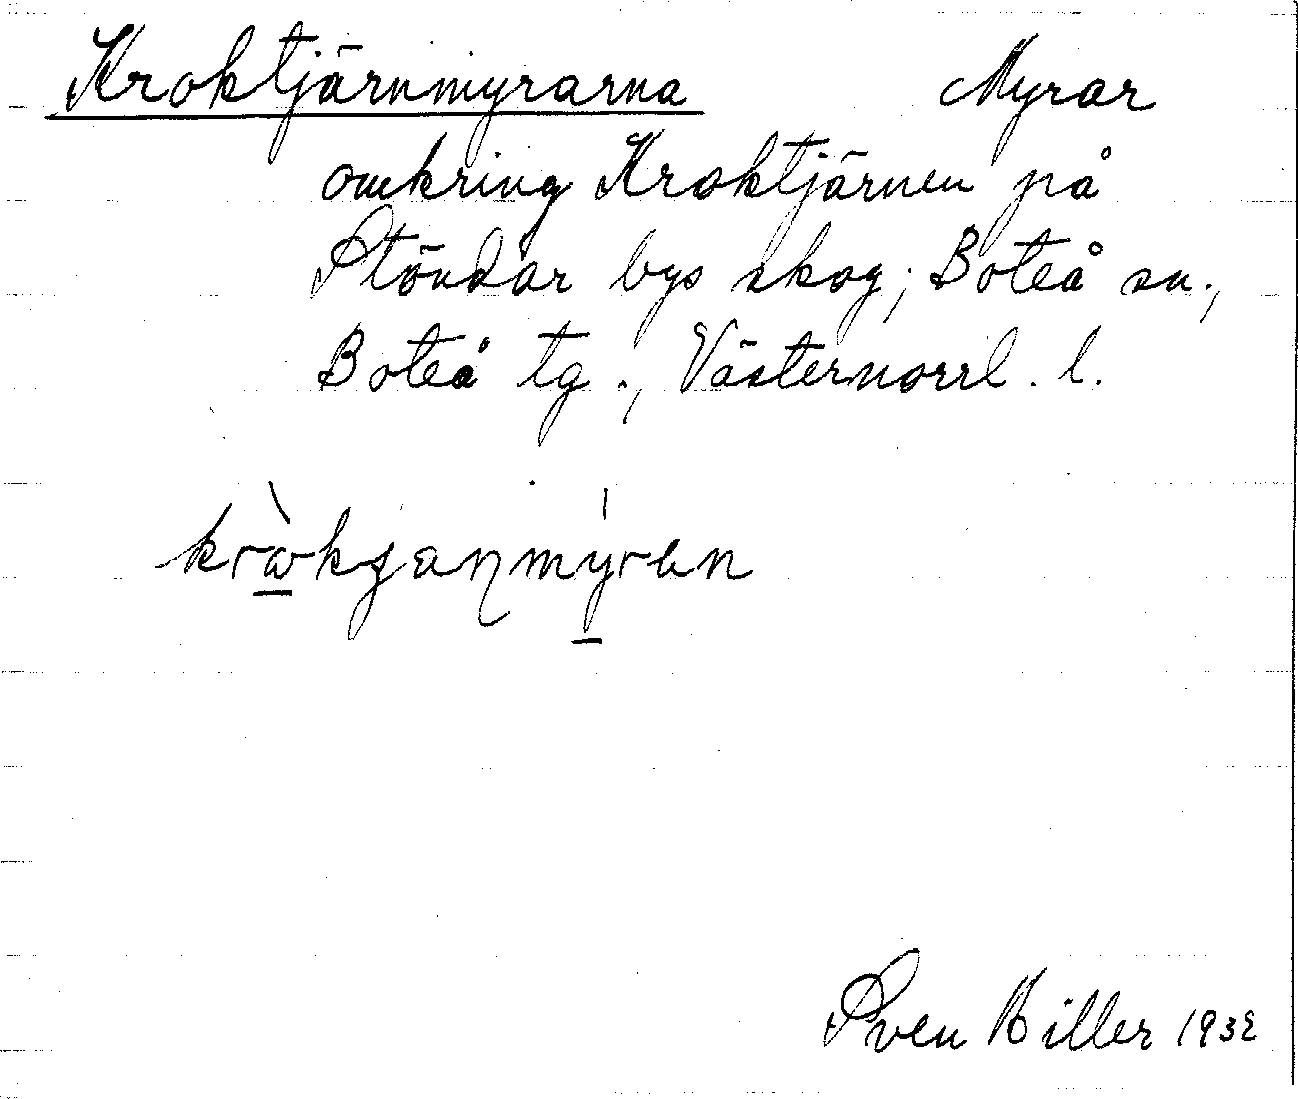 Kroktjärnmyrarna Myrar
omkring Kroktjärnen på
Stöndar bys skog; Boteå sn.,
Boteå tg., Västernorrl. l.
kròkjaŋmýrɐn
Sven Hiller 1932